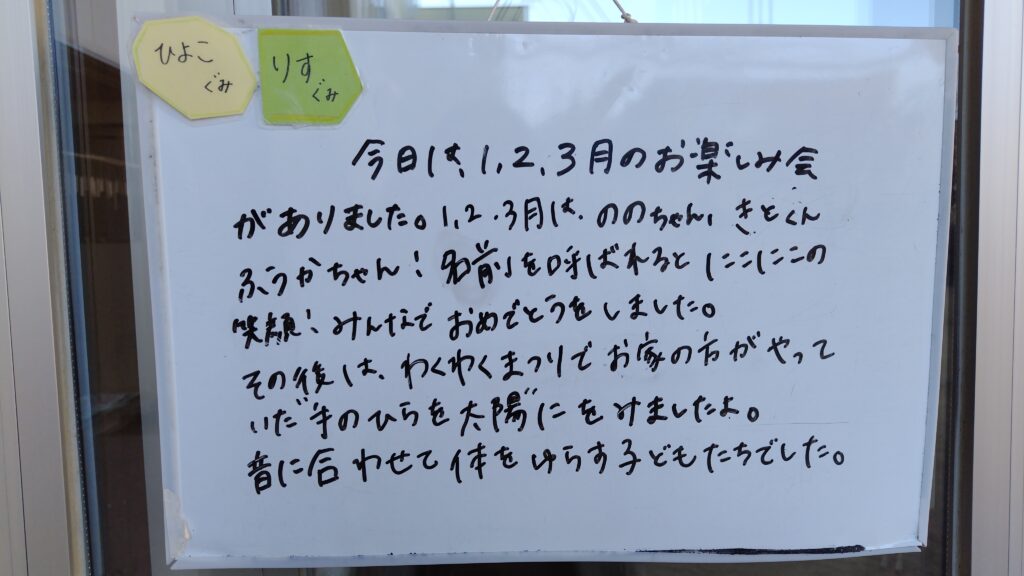 ひよこ
ぐみ
りす
ぐみ
今日は、1,2,3月のお楽しみ会
がありました。1,2.3月は、ののちゃん、きとくん
ふうかちゃん!名前を呼ばれるとにこにこの
笑顔!みんなでおめでとうをしました。
その後は、わくわくまつりでお家の方がやって
いた"手のひらを太陽に"をみましたよ。
音に合わせて体をゆらす子どもたちでした。